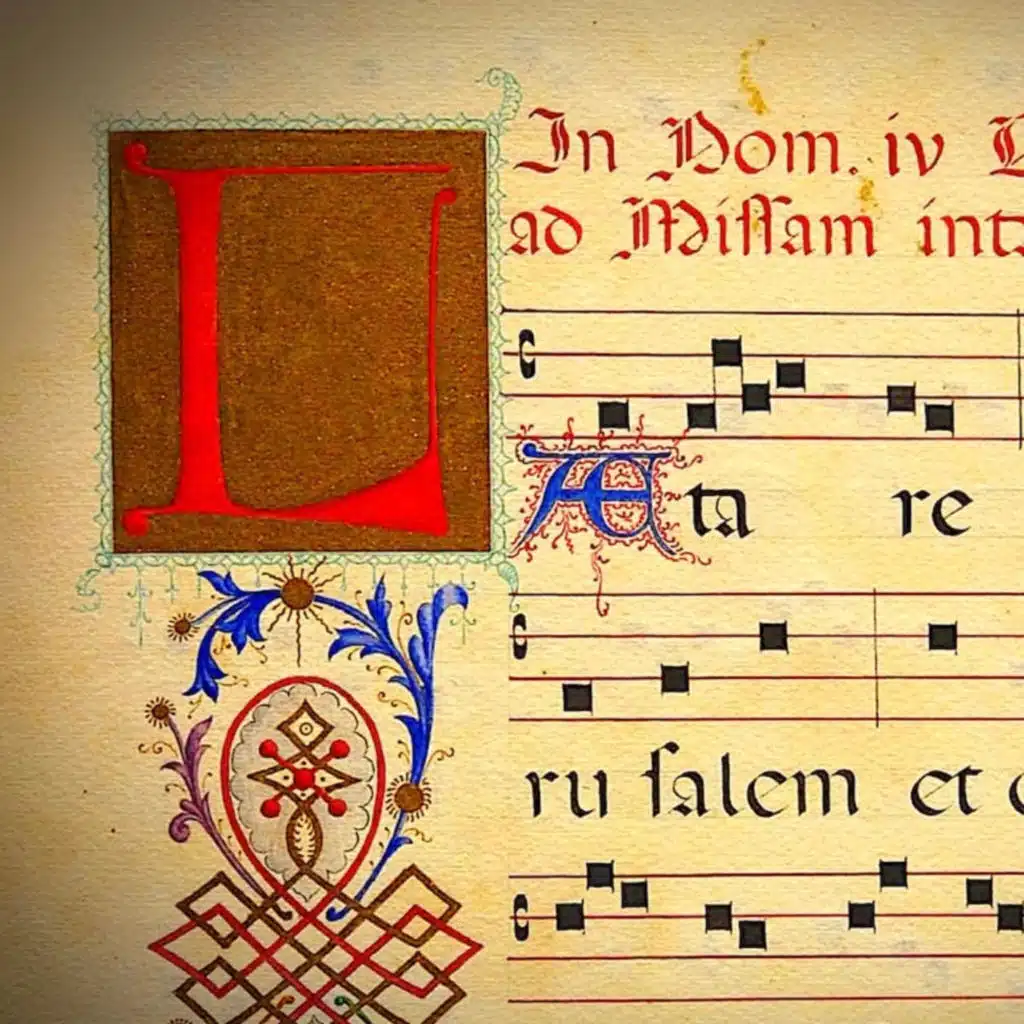 In Dom. iv
ad Miſſam
LÆta re
ru ſalem et